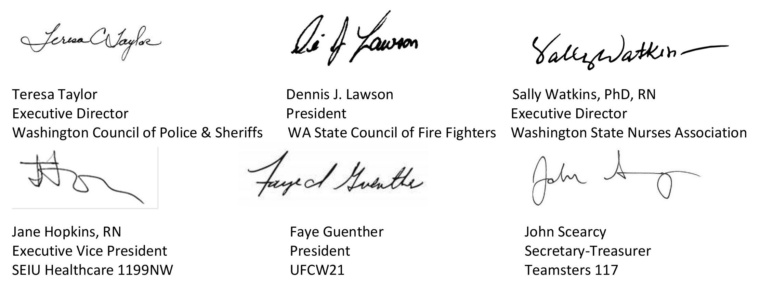 Teresa C Taylor
Di J Lawson
Sally Watkin
Teresa Taylor
Dennis J. Lawson
Sally Watkins, PhD, RN
Executive Director
President
Executive Director
Washington Council of Police & Sheriffs
WA State Council of Fire Fighters
Washington State Nurses Association
Faye Guenthe
John
Jane Hopkins, RN
Faye Guenther
John Scearcy
Executive Vice President
President
Secretary-Treasurer
SEIU Healthcare 1199NW
UFCW21
Teamsters 117